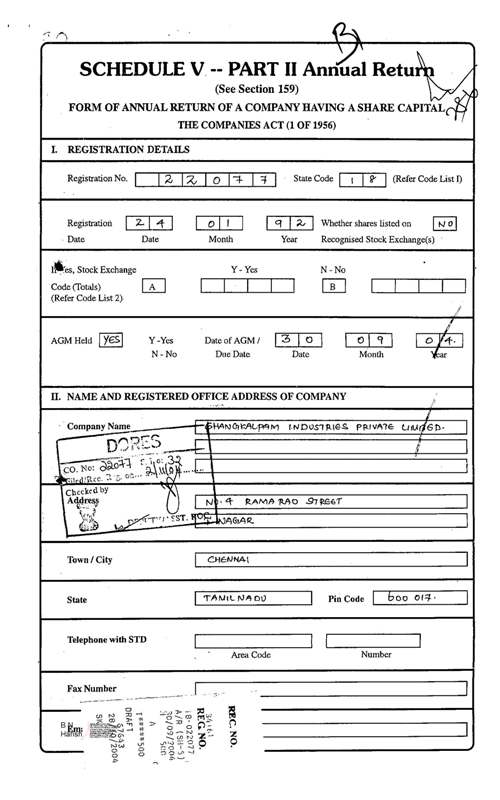 SCHEDULE V -- PART II Annual Return
(See Section 159)
FORM OF ANNUAL RETURN OF A COMPANY HAVING A SHARE CAPITAL
THE COMPANIES ACT (1 OF 1956)
I. REGISTRATION DETAILS
Registration No. 22077 State Code 18 (Refer Code List I)
Registration 24 01 92 Whether shares listed on NO
Date Date Month Year Recognised Stock Exchange(s)
Yes, Stock Exchange Y - Yes N - No
Code (Totals) A B
(Refer Code List 2)
AGM Held YES Y -Yes Date of AGM / 30 09 04
N - No Due Date Date Month Year
II. NAME AND REGISTERED OFFICE ADDRESS OF COMPANY
Company Name SHANGKALPAM INDUSTRIES PRIVATE LIMITED.
DORES
CO. No: 22077 32
Checked by
Address NO. 4 RAMA RAO STREET
T NAGAR
Town / City CHENNAI
State TAMILNADU Pin Code 600 017.
Telephone with STD
Area Code Number
Fax Number
REC. NO.
REG. NO.
18-022077
A/R (SH-5)
30/09/2004
500
DRAFT
57643